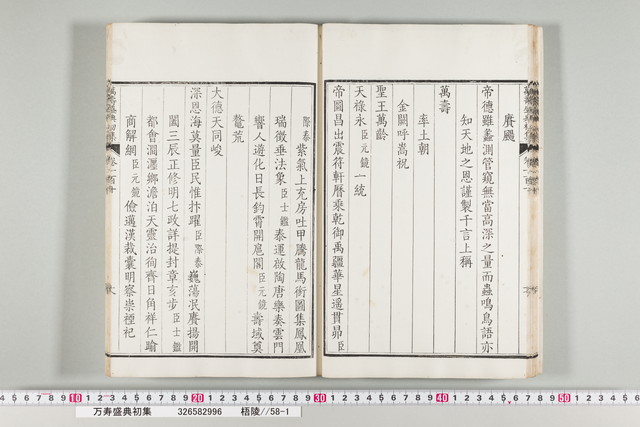 賡颺
帝德雖蠡測管窺無當高深之量而蟲鳴鳥語亦
知天地之恩謹製千言上稱
萬壽
率土朝
金闕呼嵩祝
聖王萬齡
天祿永臣元鏡一統
帝圖昌出震符軒曆乘乾御禹疆華星遥貫昴臣
際泰紫氣上充房吐甲騰龍馬銜圖集鳳凰
瑞徵垂法象臣士鑑泰運啟陶唐樂奏雲門
響人遊化日長鈞霄開扈閣臣元鏡壽域奠
鼇荒
大德天同峻
深恩海莫量臣民惟抃躍臣際泰巍蕩泯賡揚開
闔三辰正修明七政詳提封章亥步臣士鑑
都會澗瀍鄉澹泊天靈治徇齊日角祥仁踰
商解網臣元鏡儉邁漢裁囊明察崇禋祀
萬壽盛典初集
卷一百十
万寿盛典初集 326582996 梧陵//58-1
10 20 30 40 50